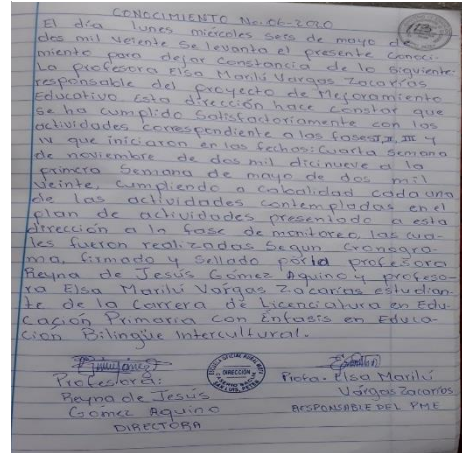 CONOCIMIENTO No. 06-2020
El día lunes miercoles seis de mayo de
dos mil veiente se levanta el presente Conoci-
miento para dejar constancia de lo siguiente:
La profesora Elsa Marilú Vargas Zacarías
responsable del proyecto de Mejoramiento
Educativo Esta dirección hace constar que
se ha cumplido Satisfactoriamente con las
actividades correspondiente a las fases I, II, III y
IV que iniciaron en las fechas: Cuarta Semana
de noviembre de dos mil dicinueve a la
primera Semana de mayo de dos mil
veinte, cumpliendo a cabalidad cada una
de las actividades contempladas en el
plan de actividades presentado a esta
dirección a la fase de monitoreo, las cua-
les fueron realizadas Segun Cronogra-
ma, firmado y Sellado por la profesora
Reyna de Jesús Gómez Aquino y profeso-
ra Elsa Marilú Vargas Zacarías estudian-
te de la Carrera de Licenciatura en Edu-
cación Primaria con Énfasis en Educa-
ción Bilingüe Intercultural.
Profesora:
Reyna de Jesús
Gómez Aquino
DIRECTORA
DIRECCIÓN
Elsa Marilú
Vargas Zacarías
RESPONSABLE DEL PME